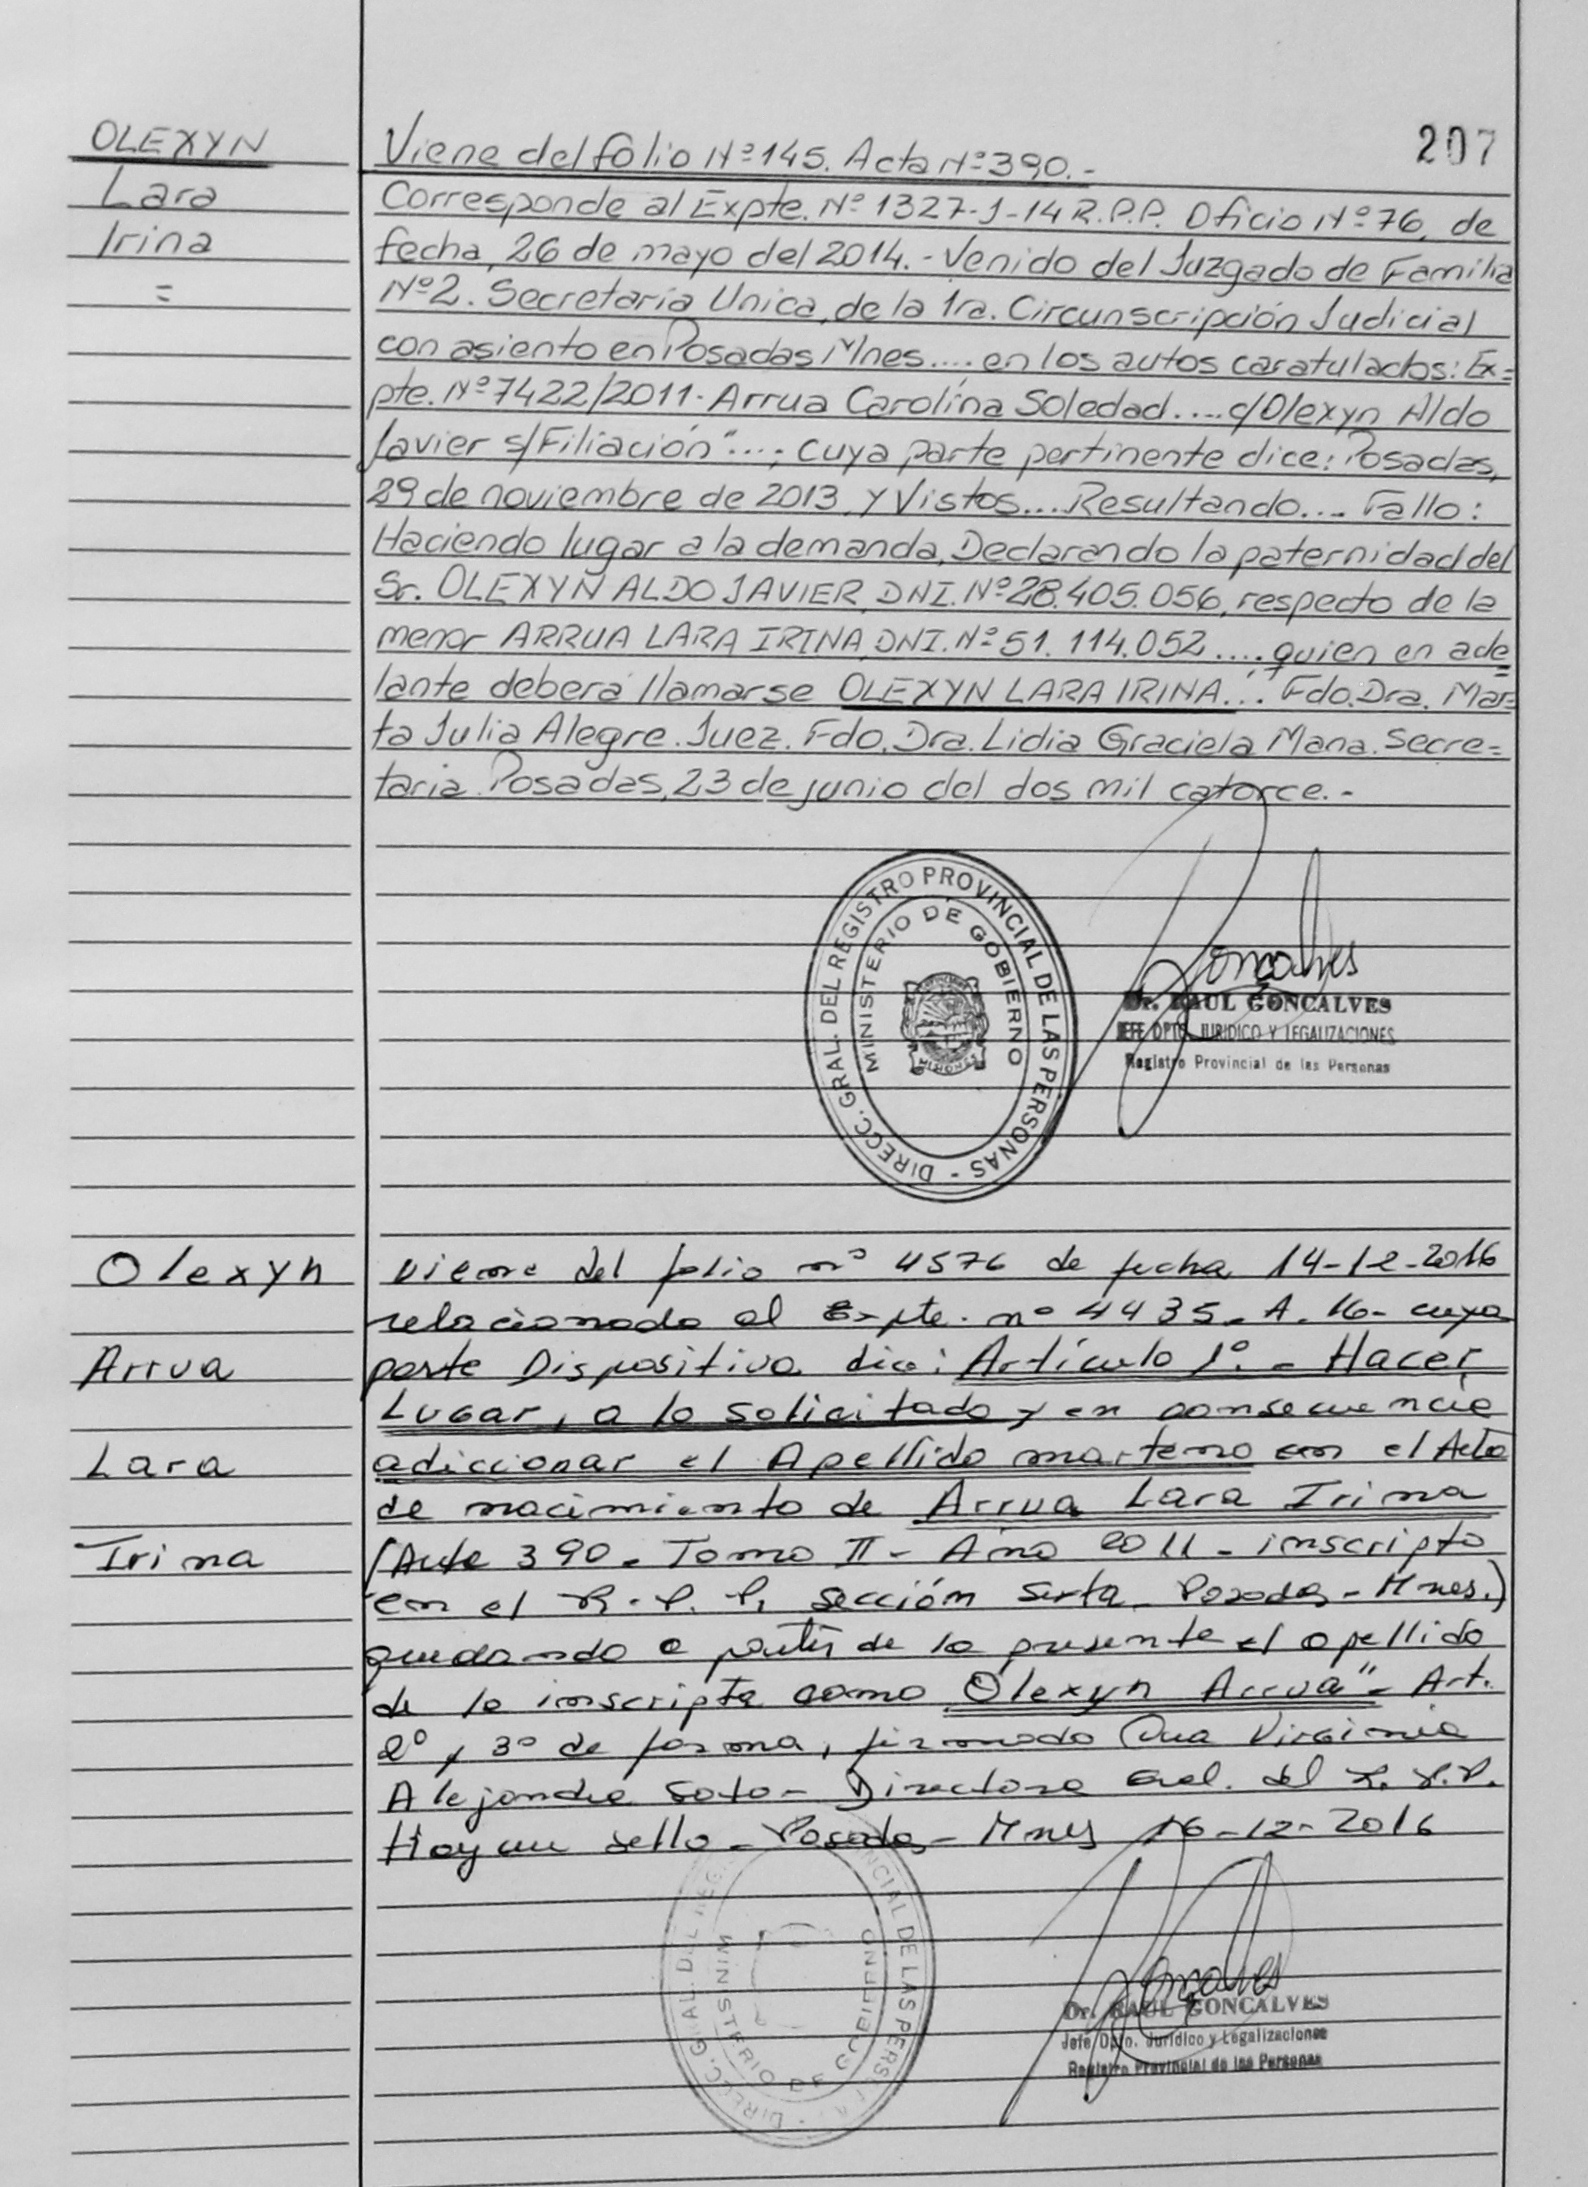 207
OLEXYN
Lara
Irina
=
Viene del folio Nº 145. Acta Nº 390.-
Corresponde al Expte. Nº 1327-J-14 R.P.P. Oficio Nº 76, de
fecha, 26 de mayo del 2014.- Venido del Juzgado de Familia
Nº2. Secretaría Unica, de la 1ra. Circunscripción Judicial
con asiento en Posadas Mnes.... en los autos caratulados: Ex=
pte. Nº 7422/2011. Arrua Carolina Soledad.... c/Olexyn Aldo
Javier s/Filiación"...; cuya parte pertinente dice: Posadas,
29 de noviembre de 2013. Y Vistos... Resultando.... Fallo:
Haciendo lugar a la demanda, Declarando la paternidad del
Sr. OLEXYN ALDO JAVIER, DNI. Nº 28.405.056, respecto de la
menor ARRUA LARA IRINA, DNI. Nº 51.114.052.... quien en ade=
lante deberá llamarse OLEXYN LARA IRINA... Fdo. Dra. Mar=
ta Julia Alegre. Juez. Fdo. Dra. Lidia Graciela Mana. Secre=
taria. Posadas, 23 de junio del dos mil catorce.-
DIRECC. GRAL. DEL REGISTRO PROVINCIAL DE LAS PERSONAS -
MINISTERIO DE GOBIERNO
MISIONES
Goncalves
Dr. RAUL GONCALVES
JEFE DPTO. JURIDICO Y LEGALIZACIONES
Registro Provincial de las Personas
Olexyn
Arrua
Lara
Irina
Viene del folio nº 4576 de fecha 14-12-2016
relacionado al Expte. nº 4435-A-16- cuya
parte Dispositiva dice: Artículo 1º.- Hacer
Lugar, a lo solicitado y en consecuencia
adiccionar el Apellido materno en el Acta
de nacimiento de Arrua Lara Irina
(Acta 390- Tomo II- Año 2011- inscripto
en el R.P.P. sección Sexta- Posadas- Mnes.)
quedando a partir de la presente el apellido
de la inscripta como "Olexyn Arrua"- Art.
2º y 3º de forma, firmado Dra Virginia
Alejandra Soto- Directora Gral. del R.P.P.
Hay un sello- Posadas- Mnes 16-12-2016
DIRECC. GRAL. DEL REG NCIAL DE LAS PERS
MINISTERIO DE GOBIERNO
Goncalves
Dr. RAUL GONCALVES
Jefe Dpto. Jurídico y Legalizaciones
Registro Provincial de las Personas